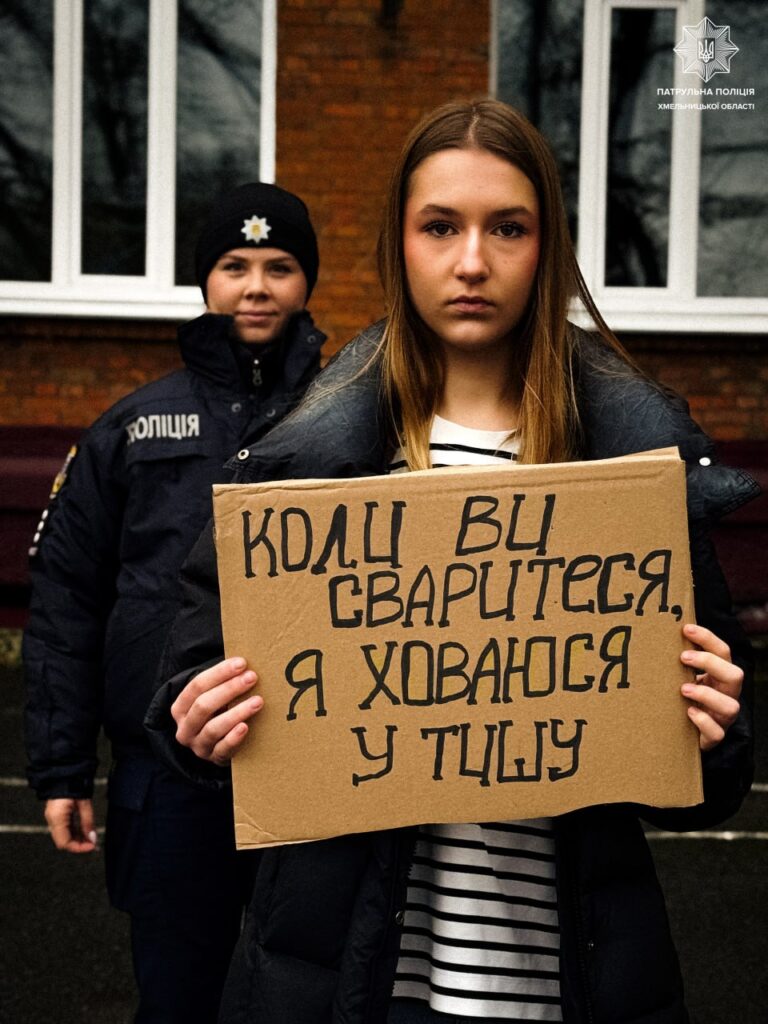 ПАТРУЛЬНА ПОЛІЦІЯ
ХМЕЛЬНИЦЬКОЇ ОБЛАСТІ
ПОЛІЦІЯ
КОЛИ ВИ
СВАРИТЕСЯ,
Я ХОВАЮСЯ
У ТИШУ